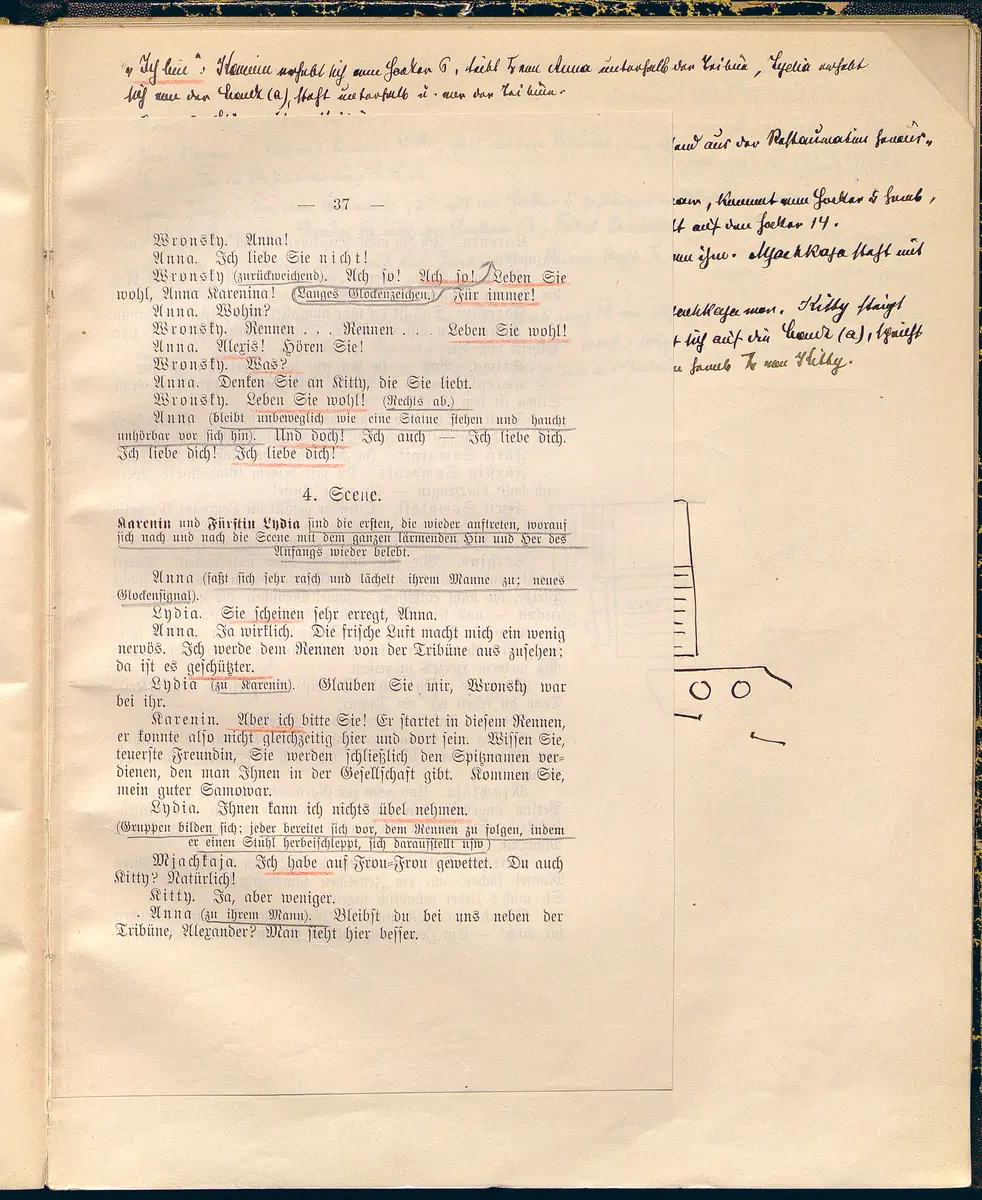 „Ich bin": Karenin erhebt sich vom Hocker 6, steht von Anna unterhalb der Tribüne, Lydia erhebt
sich von der Bank (a), steht unterhalb u. vor der Tribüne.
aus der Restauration heraus-
, kommt vom Hocker 5 herab,
auf den Hocker 14.
ihm. Mjachkaja steht mit
Kitty steigt
sich auf die Bank (a), spricht
von Kitty.
— 37 —
Wronsky. Anna!
Anna. Ich liebe Sie nicht!
Wronsky (zurückweichend). Ach so! Ach so! Leben Sie
wohl, Anna Karenina! (Langes Glockenzeichen.) Für immer!
Anna. Wohin?
Wronsky. Rennen . . . Rennen . . . Leben Sie wohl!
Anna. Alexis! Hören Sie!
Wronsky. Was?
Anna. Denken Sie an Kitty, die Sie liebt.
Wronsky. Leben Sie wohl! (Rechts ab.)
Anna (bleibt unbeweglich wie eine Statue stehen und haucht
unhörbar vor sich hin). Und doch! Ich auch — Ich liebe dich.
Ich liebe dich! Ich liebe dich!
4. Scene.
Karenin und Fürstin Lydia sind die ersten, die wieder auftreten, worauf
sich nach und nach die Scene mit dem ganzen lärmenden Hin und Her des
Anfangs wieder belebt.
Anna (faßt sich sehr rasch und lächelt ihrem Manne zu; neues
Glockensignal).
Lydia. Sie scheinen sehr erregt, Anna.
Anna. Ja wirklich. Die frische Luft macht mich ein wenig
nervös. Ich werde dem Rennen von der Tribüne aus zusehen;
da ist es geschützter.
Lydia (zu Karenin). Glauben Sie mir, Wronsky war
bei ihr.
Karenin. Aber ich bitte Sie! Er startet in diesem Rennen,
er konnte also nicht gleichzeitig hier und dort sein. Wissen Sie,
teuerste Freundin, Sie werden schließlich den Spitznamen ver-
dienen, den man Ihnen in der Gesellschaft gibt. Kommen Sie,
mein guter Samowar.
Lydia. Ihnen kann ich nichts übel nehmen.
(Gruppen bilden sich; jeder bereitet sich vor, dem Rennen zu folgen, indem
er einen Stuhl herbeischleppt, sich daraufstellt usw)
Mjachkaja. Ich habe auf Frou-Frou gewettet. Du auch
Kitty? Natürlich!
Kitty. Ja, aber weniger.
Anna (zu ihrem Mann). Bleibst du bei uns neben der
Tribüne, Alexander? Man sieht hier besser.